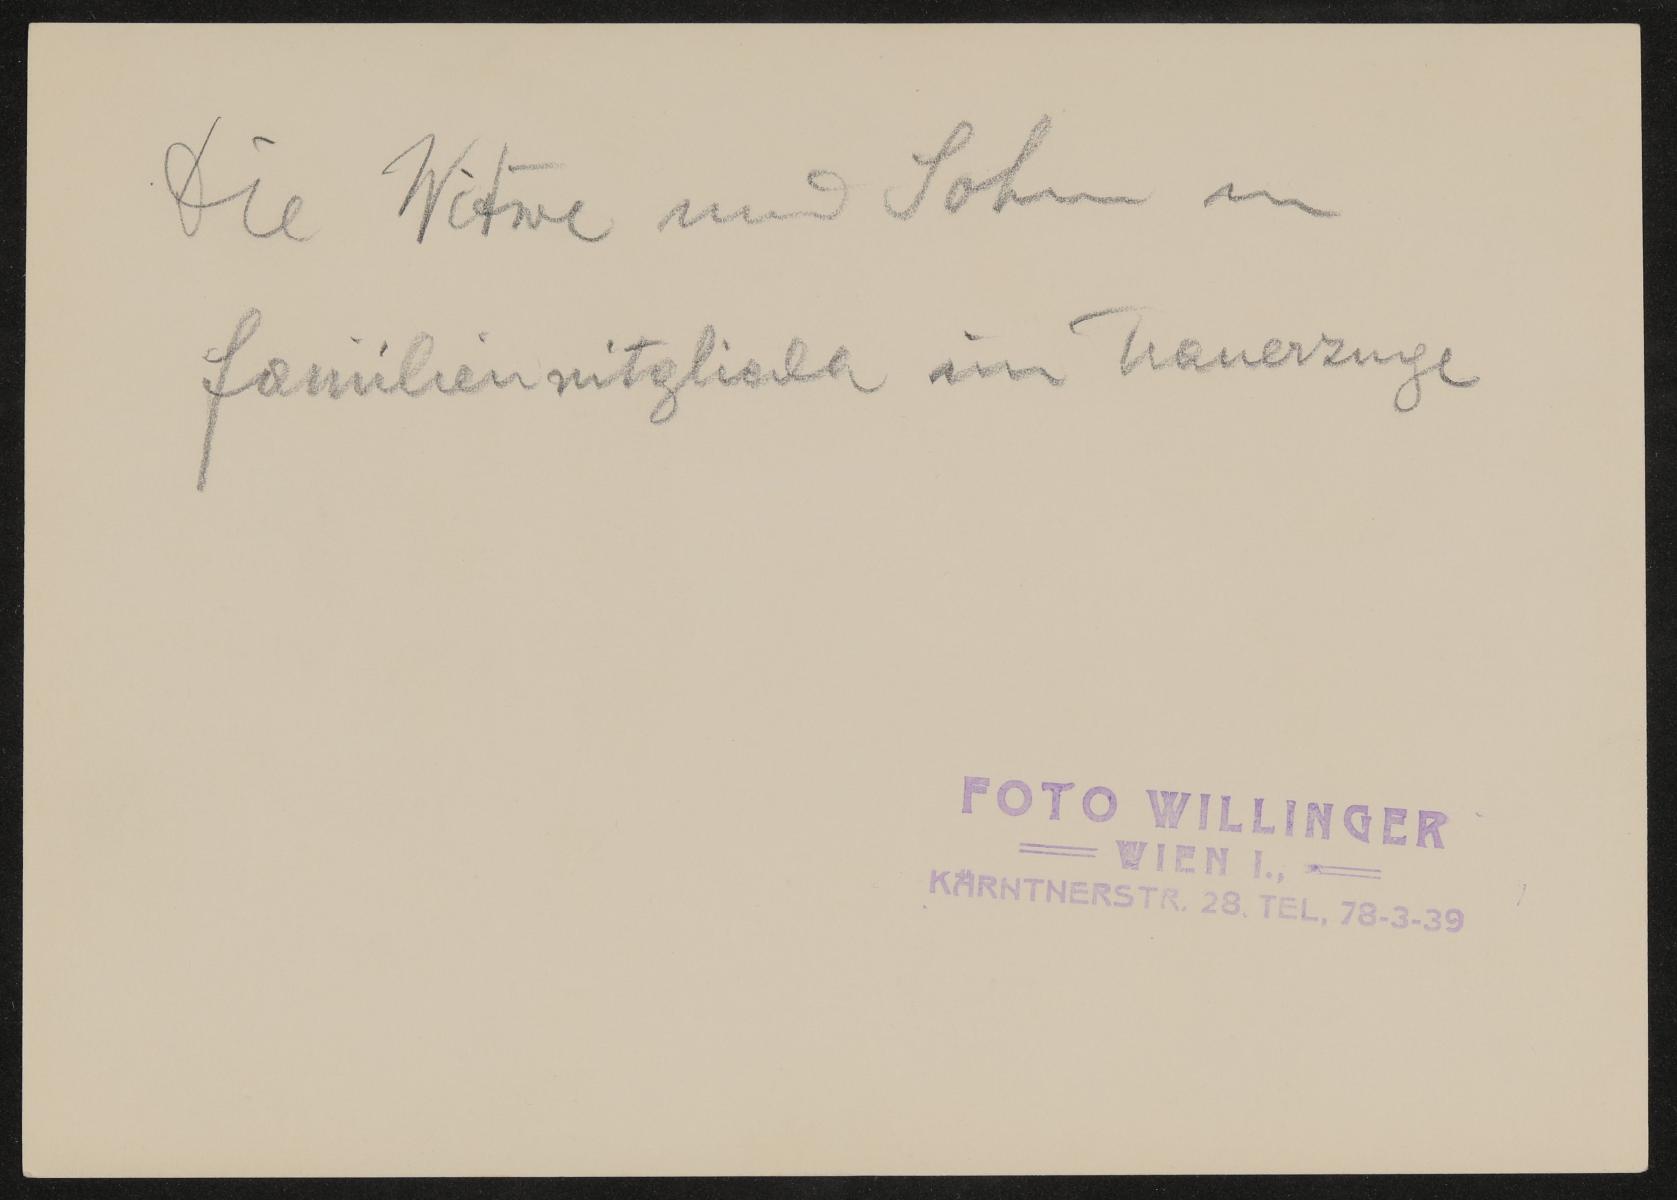 Die Witwe und Sohn u
Familienmitglieder im Trauerzuge
FOTO WILLINGER
WIEN I.,
KÄRNTNERSTR. 28. TEL. 78-3-39